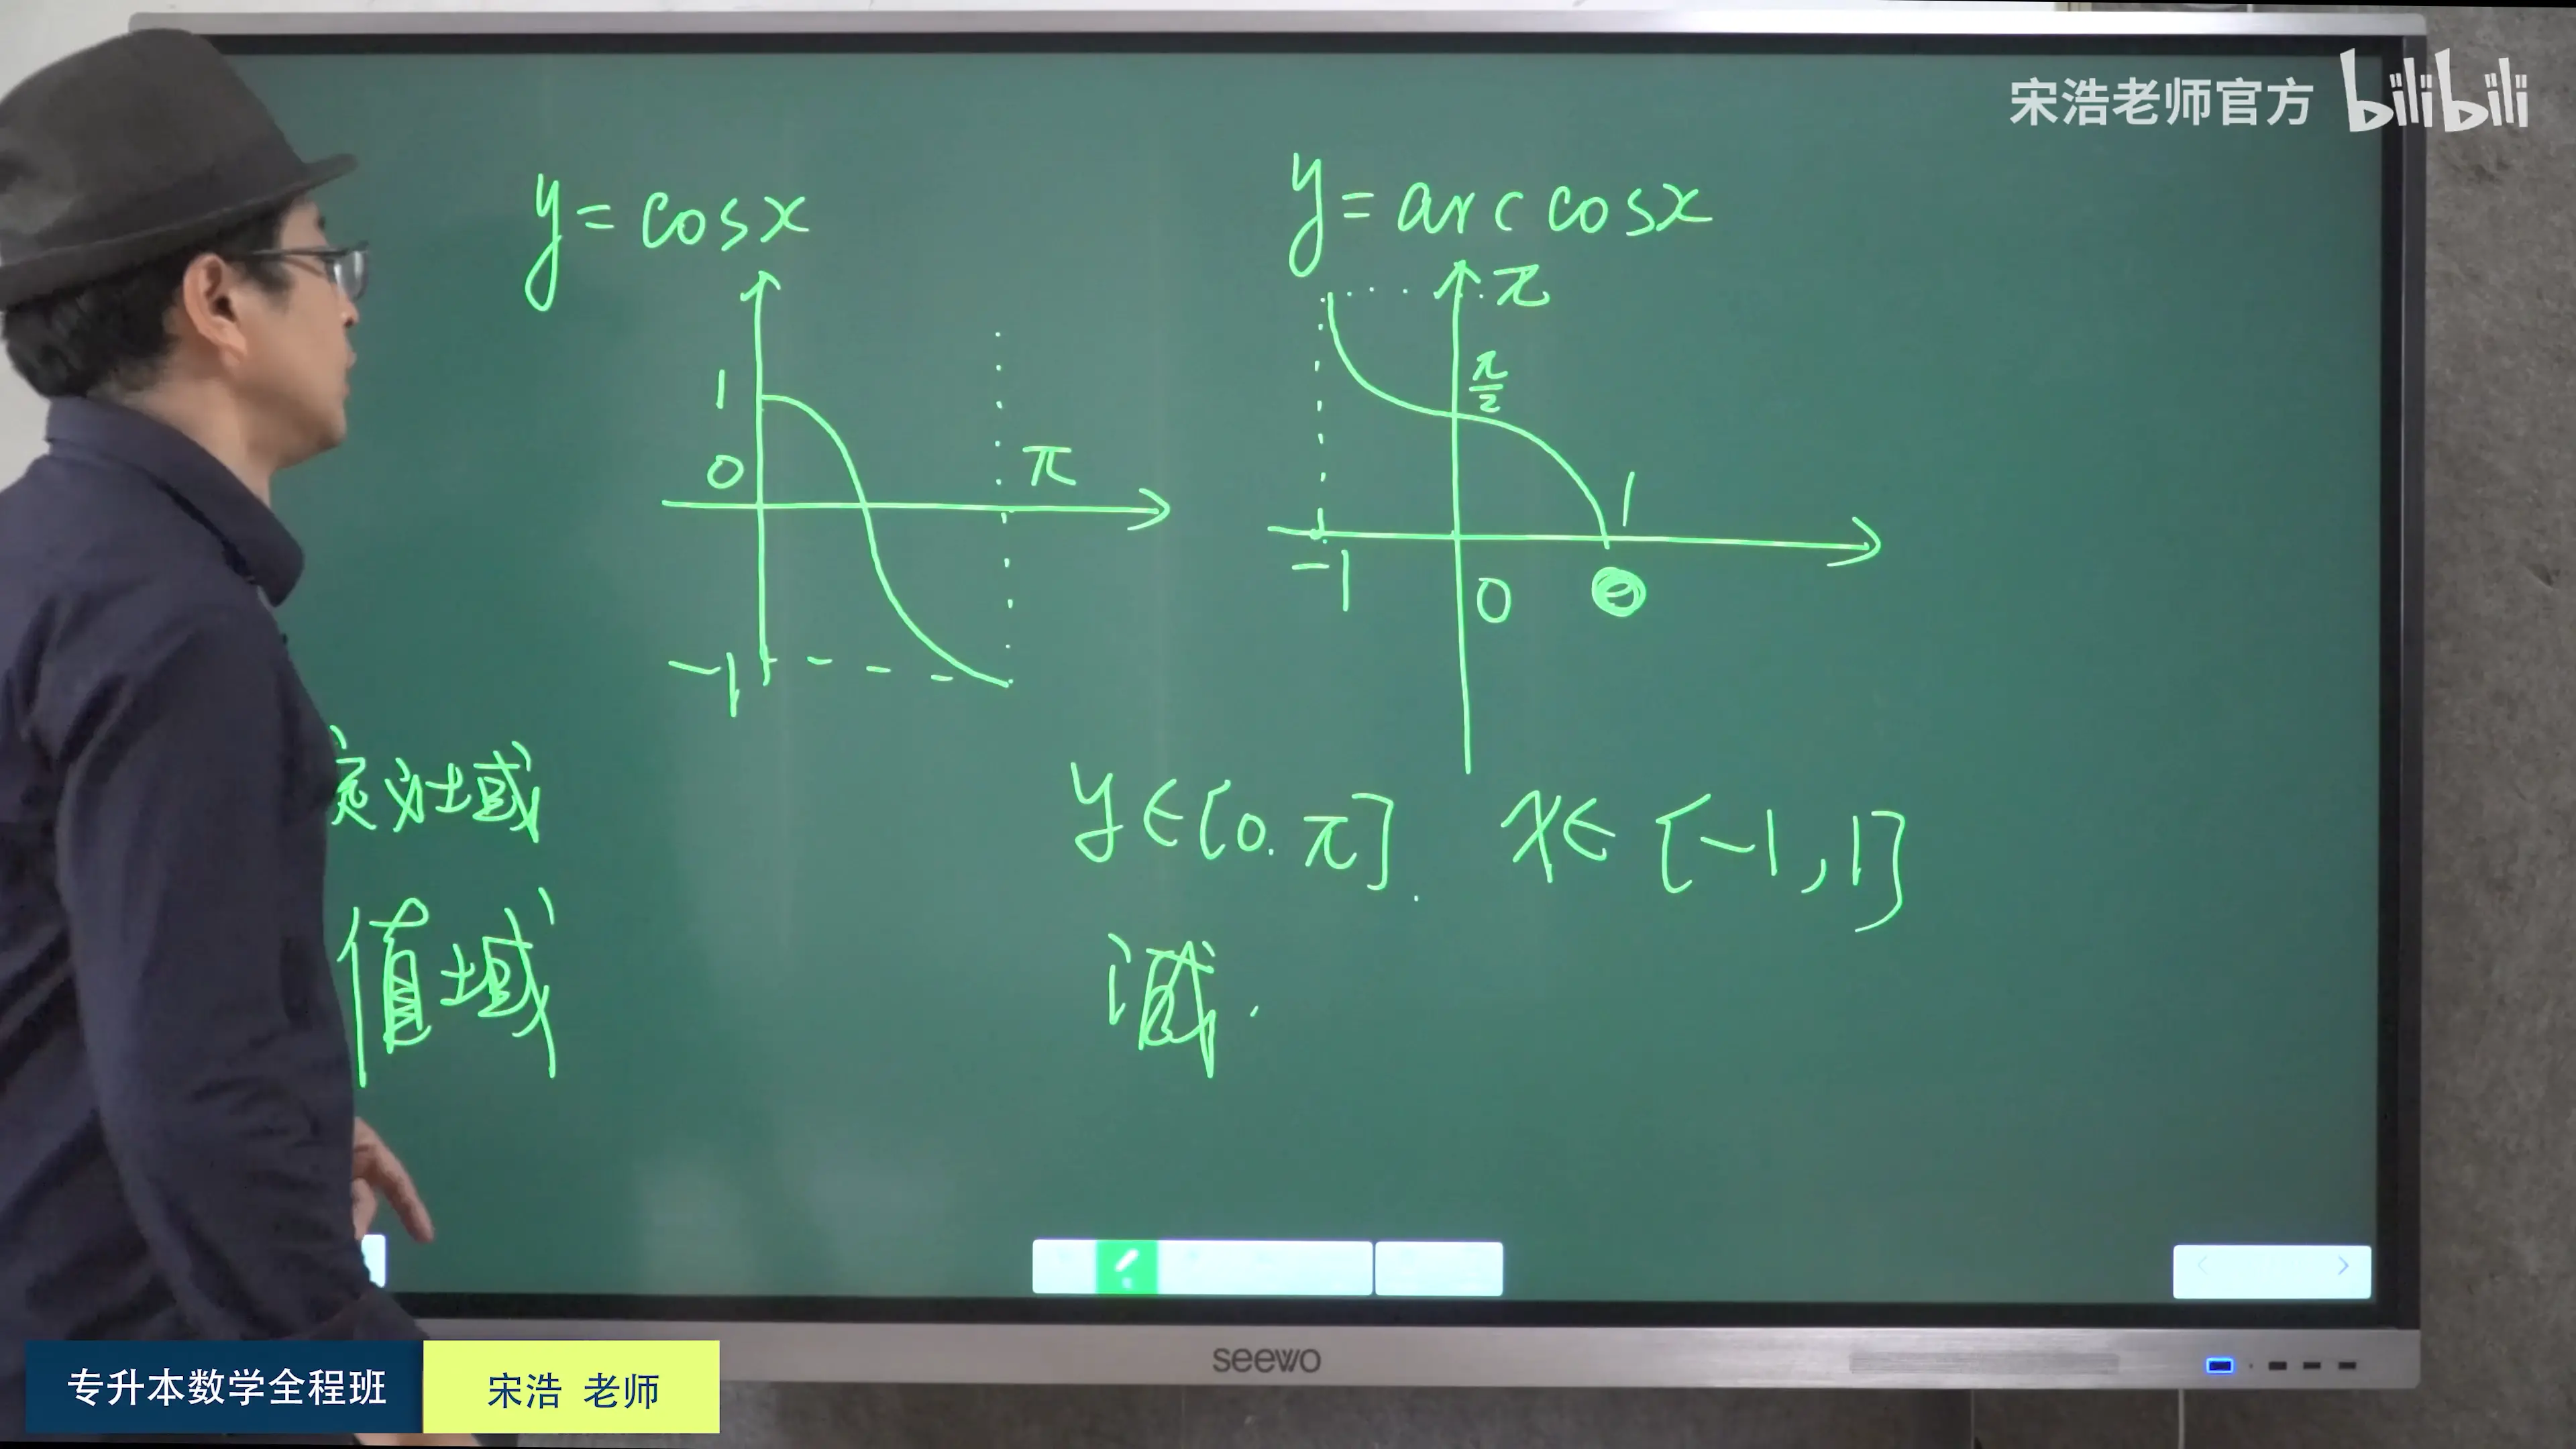 宋浩老师官方 bilibili
y=cosx
y=arccosx
1
0
π
-1
π
π/2
1
-1
0
定义域
y∈[0.π]. x∈[-1,1]
值域
减.
seewo
专升本数学全程班
宋浩 老师